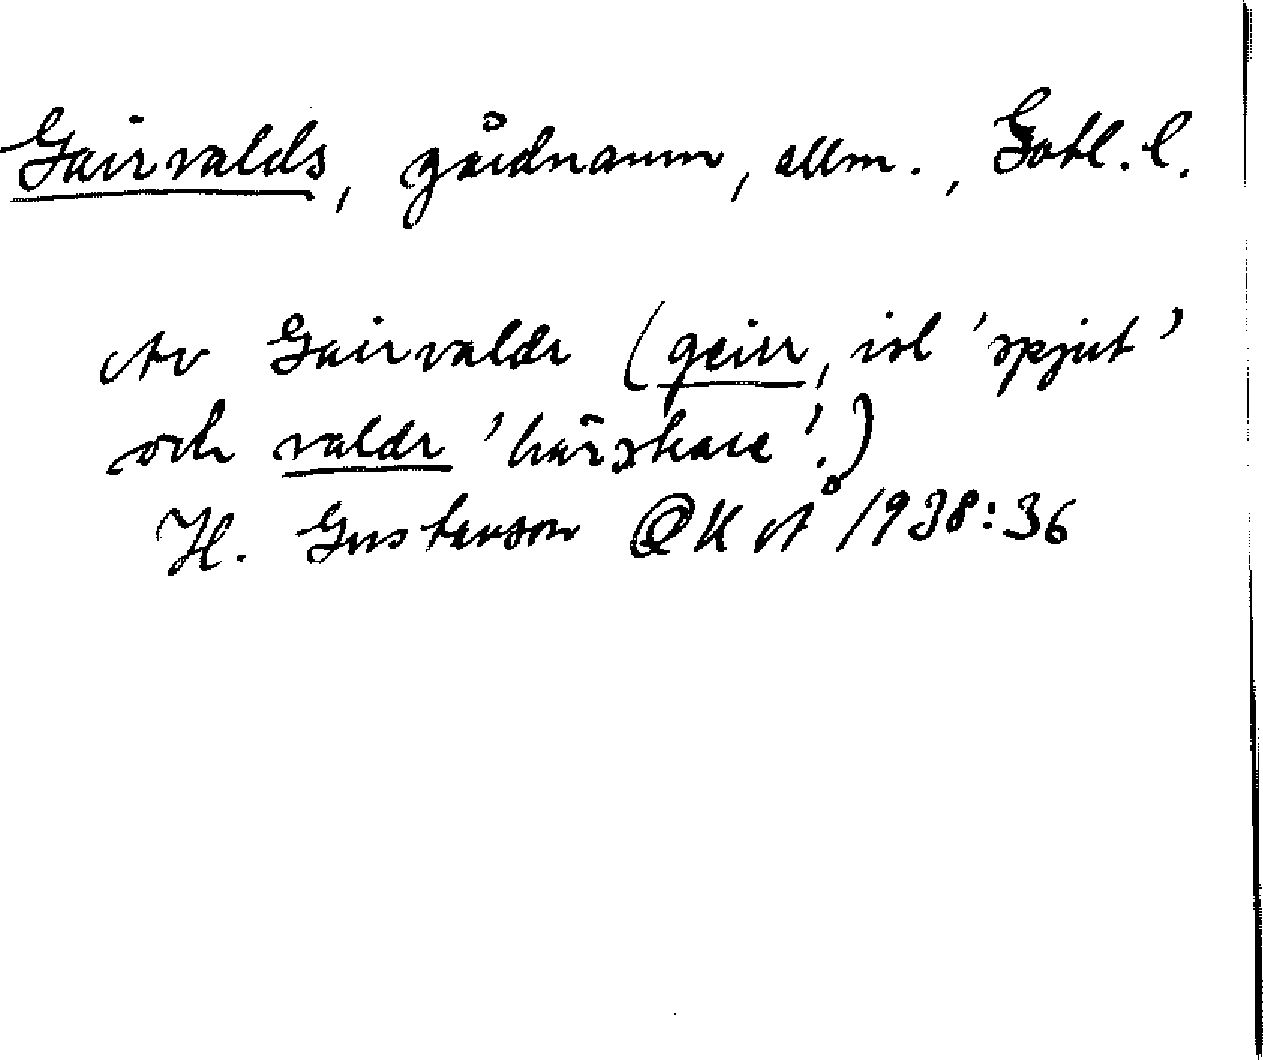 Gairvalds, gårdnamn, allm., Gotl. l.
Av Gairvaldr (geirr, isl 'spjut'
och valdr 'härskare'.)
H. Gustavson GKÅ 1938:36